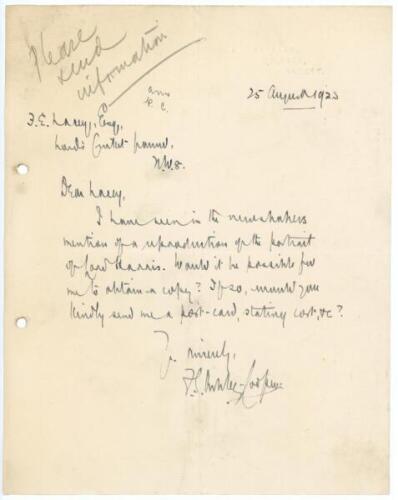 Please
send
information
25 August 1923
F. E. Lacey, Esq,
Lord's Cricket Ground,
N.W.8.
Dear Lacey,
I have seen in the newspapers
mention of a reproduction of the portrait
of Lord Harris. Would it be possible for
me to obtain a copy? If so, would you
kindly send me a post-card, stating cost, &c?
Yr. sincerely,
F. S. Ashley-Cooper